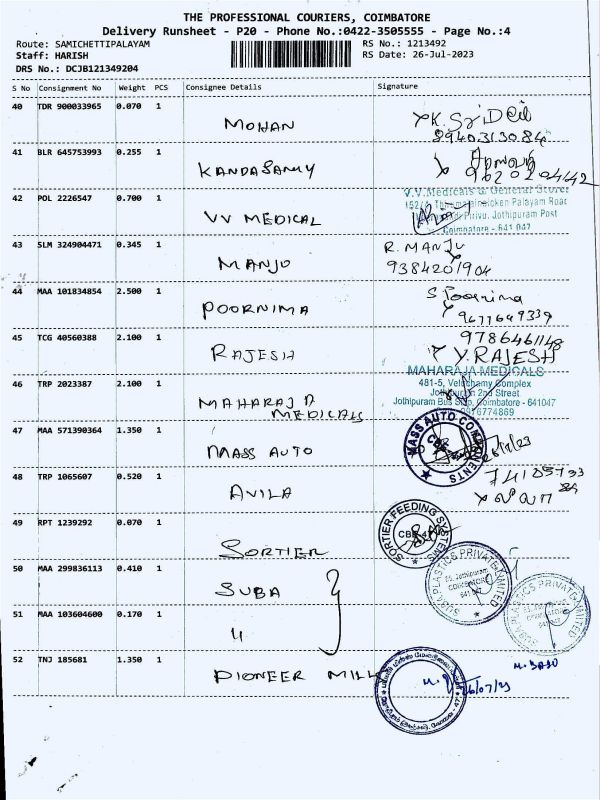 THE PROFESSIONAL COURIERS, COIMBATORE
Delivery Runsheet - P20 - Phone No.:0422-3505555 - Page No.:4
Route: SAMICHETTIPALAYAM
RS No.: 1213492
Staff: HARISH
RS Date: 26-Jul-2023
DRS No.: DCJB121349204
S No Consignment No Weight PCS Consignee Details Signature
40 TDR 900033965 0.070 1 MOHAN
8940313084
41 BLR 645753993 0.255 1 KANDASAMY
42 POL 2226547 0.700 1 VV MEDICAL
V.V.Medicals & General Stores
Pirivu, Jothipuram Post
Coimbatore - 641 047
43 SLM 324904471 0.345 1 MANJU R. MANJU
9384201904
44 MAA 101834854 2.500 1 POORNIMA S Poornima
9677649339
45 TCG 40560388 2.100 1 RAJESH
9786461148
Y. RAJESH
46 TRP 2023387 2.100 1 MAHARAJA MEDICALS
MAHARAJA MEDICALS
481-5, Veluchamy Complex
Jothipuram 2nd Street
Jothipuram Bus Stop, Coimbatore - 641047
47 MAA 571390364 1.350 1 MASS AUTO
MASS AUTO COMPONENTS
CBE
48 TRP 1065607 0.520 1 AVILA
49 RPT 1239292 0.070 1 SORTIER
SORTIER FEEDING SYSTEMS
50 MAA 299836113 0.410 1 SUBA
SUBA PLASTICS PRIVATE LIMITED
51 MAA 103604600 0.170 1 "
SUBA PLASTICS PRIVATE LIMITED
52 TNJ 185681 1.350 1 PIONEER MILL
26/07/23